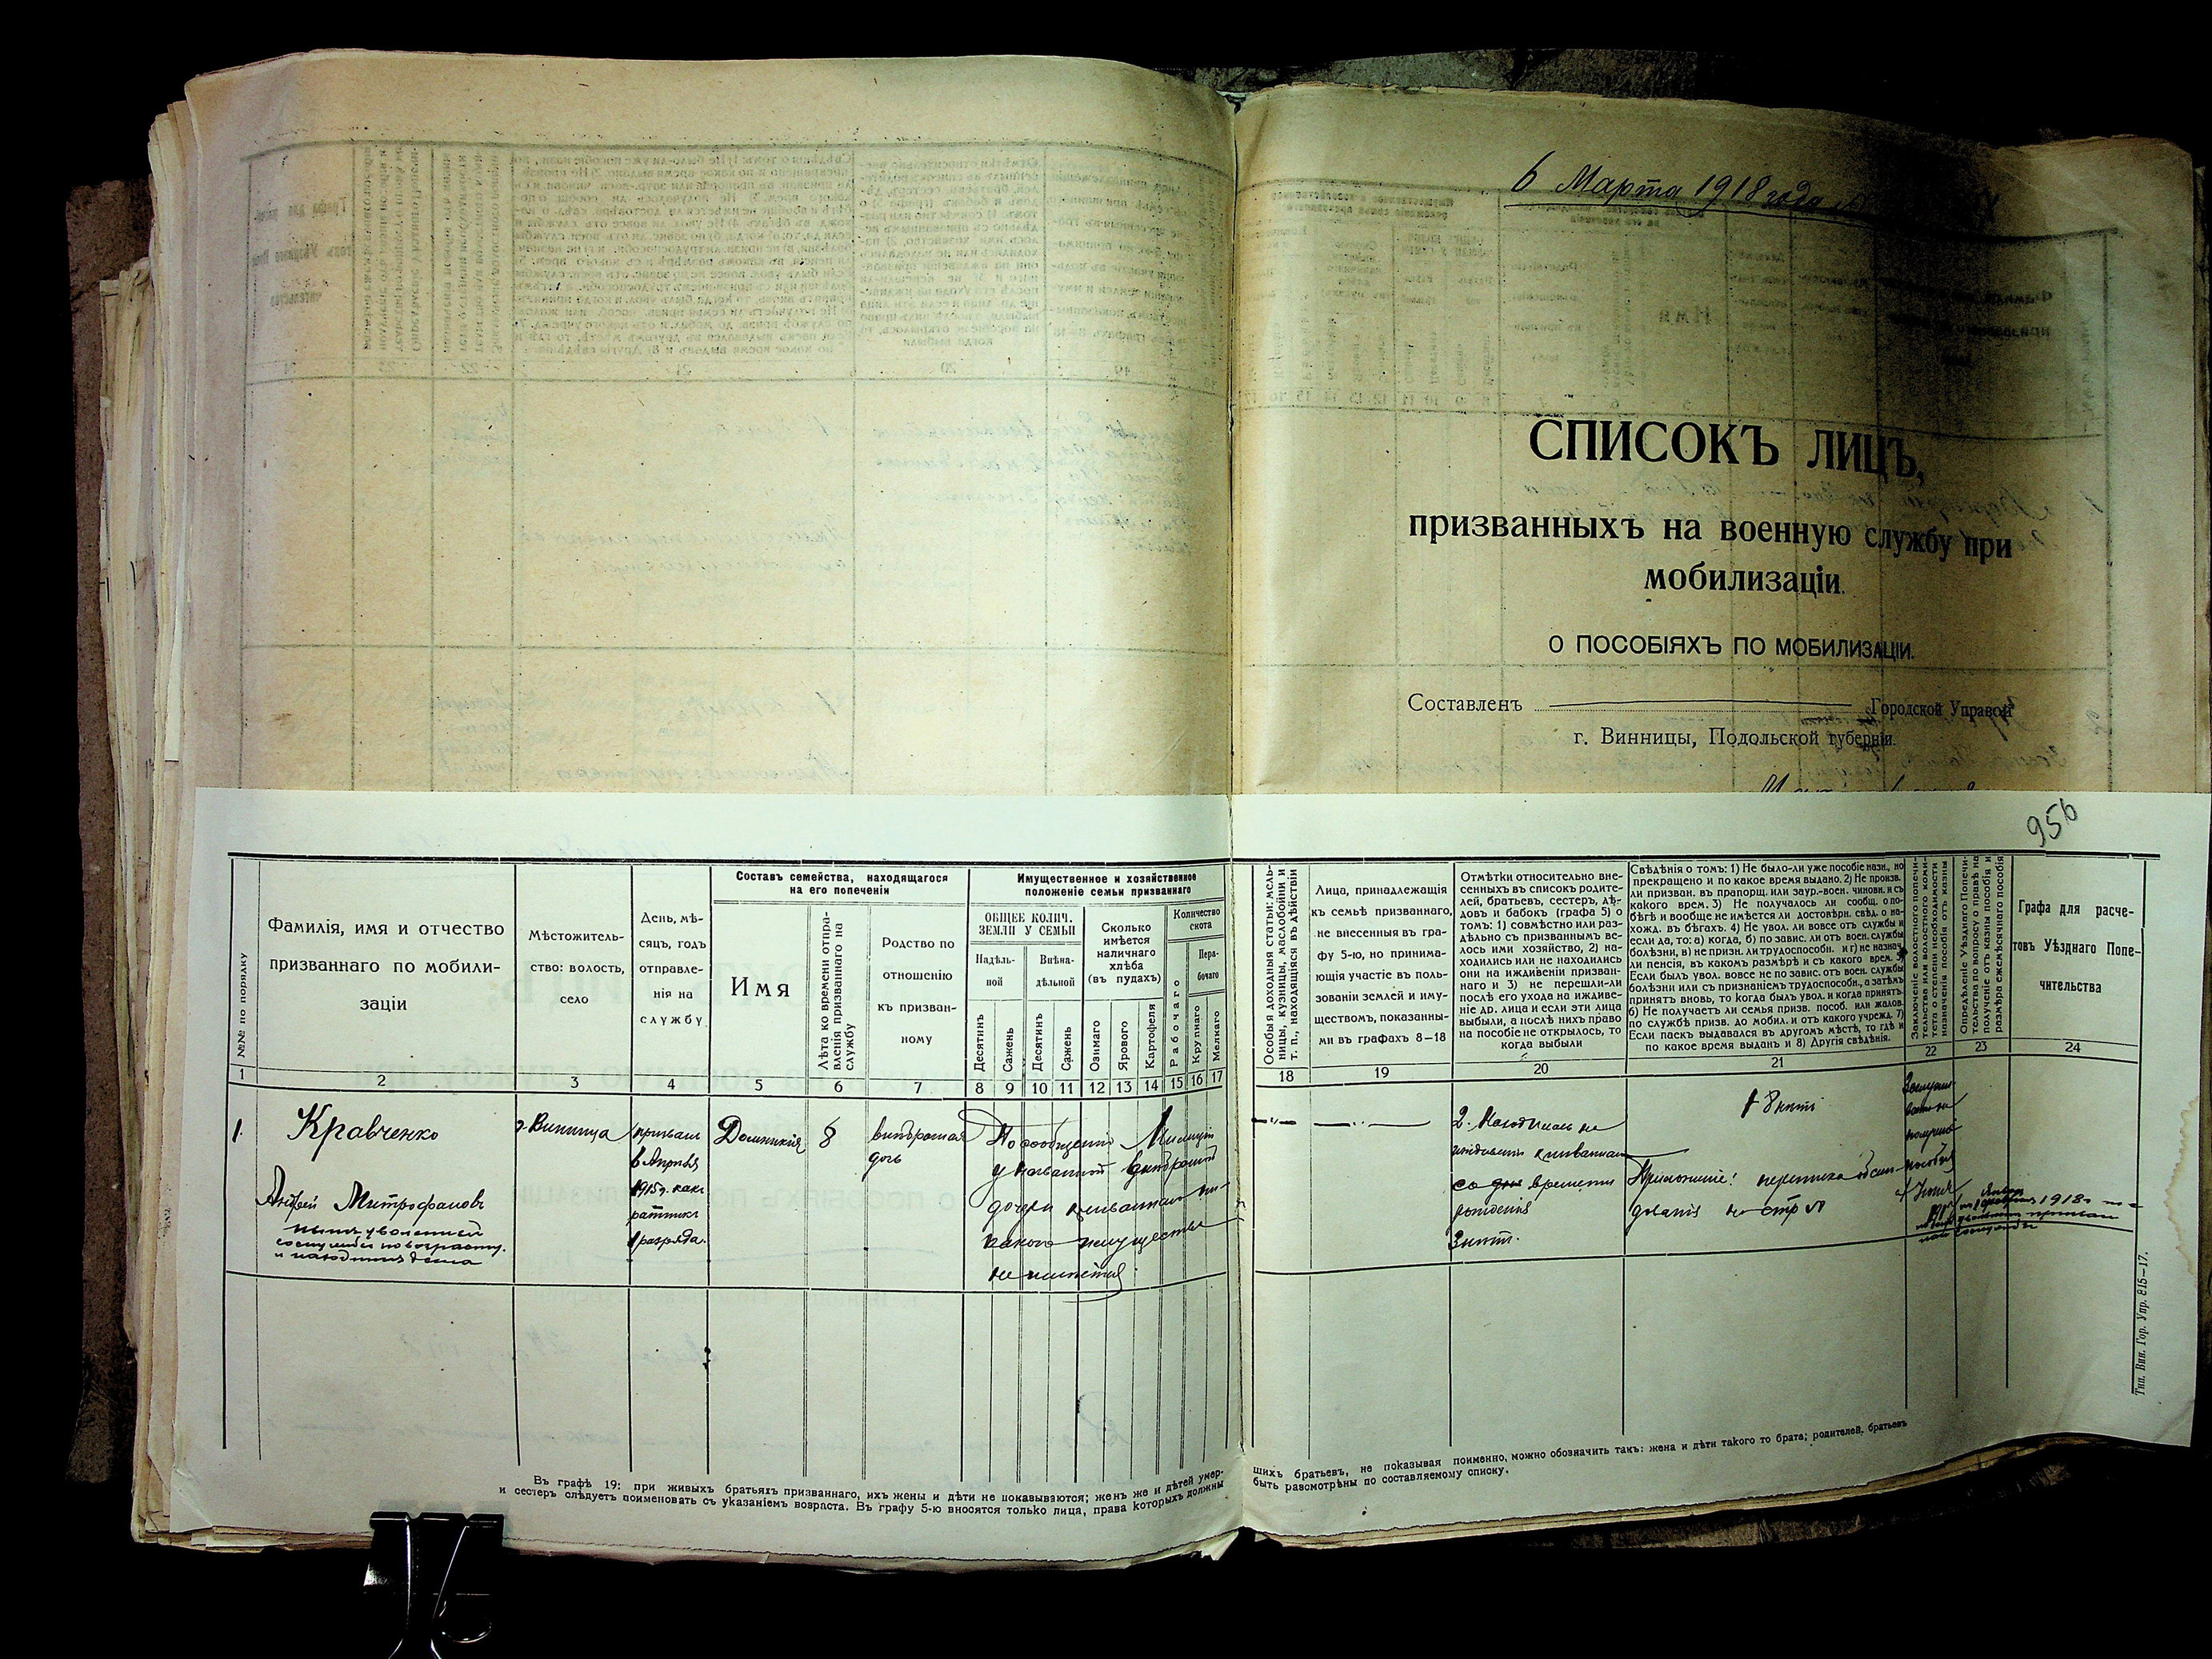 6 Марта 1918 года
СПИСОКЪ ЛИЦЪ,
призванныхъ на военную службу при
мобилизаціи.
О ПОСОБІЯХЪ ПО МОБИЛИЗАЦІИ.
Составленъ Городской Управой
г. Винницы, Подольской губерніи.
956
№№ по порядку
Фамилія, имя и отчество
призваннаго по мобили-
заціи
Мѣстожитель-
ство: волость,
село
День, мѣ-
сяцъ, годъ
отправле-
нія на
службу
Составъ семейства, находящагося
на его попеченіи
Имя
Лѣта ко времени отпра-
вленія призваннаго на
службу
Родство по
отношенію
къ призван-
ному
Имущественное и хозяйственное
положеніе семьи призваннаго
ОБЩЕЕ КОЛИЧ.
ЗЕМЛИ У СЕМЬИ
Надѣль-
ной
Внѣна-
дѣльной
Десятинъ
Сажень
Десятинъ
Сажень
Сколько
имѣется
наличнаго
хлѣба
(въ пудахъ)
Озимаго
Ярового
Картофеля
Количество
скота
Рабочаго
Нера-
бочаго
Крупнаго
Мелкаго
Особыя доходныя статьи: мель-
ницы, кузницы, маслобойни и
т. п., находящіяся въ дѣйствіи
Лица, принадлежащія
къ семьѣ призваннаго,
не внесенныя въ гра-
фу 5-ю, но принима-
ющія участіе въ поль-
зованіи землей и иму-
ществомъ, показанны-
ми въ графахъ 8—18
Отмѣтки относительно вне-
сенныхъ въ списокъ родите-
лей, братьевъ, сестеръ, дѣ-
довъ и бабокъ (графа 5) о
томъ: 1) совмѣстно или раз-
дѣльно съ призваннымъ ве-
лось ими хозяйство, 2) на-
ходились или не находились
они на иждивеніи призван-
наго и 3) не перешли-ли
послѣ его ухода на иждиве-
ніе др. лица и если эти лица
выбыли, а послѣ нихъ право
на пособіе не открылось, то
когда выбыли
Свѣдѣнія о томъ: 1) Не было-ли уже пособіе назн., но
прекращено и по какое время выдано. 2) Не произв.
ли призван. въ прапорщ. или заур.-воен. чиновн. и съ
какого врем. 3) Не получалось ли сообщ. о по-
бѣгѣ и вообще не имѣется ли достовѣрн. свѣд. о на-
хожд. въ бѣгахъ. 4) Не увол. ли вовсе отъ службы и
если да, то: а) когда, б) по завис. ли отъ воен. службы
болѣзни, в) не призн. ли трудоспособн. и г) не назнач.
ли пенсія, въ какомъ размѣрѣ и съ какого врем. 5)
Если былъ увол. вовсе не по завис. отъ воен. службы
болѣзни или съ признаніемъ трудоспособн., а затѣмъ
принятъ вновь, то когда былъ увол. и когда принятъ.
6) Не получаетъ ли семья призв. пособ. или жалов.
по службѣ призв. до мобил. и отъ какого учрежд. 7)
Если паекъ выдавался въ другомъ мѣстѣ, то гдѣ и
по какое время выданъ и 8) Другія свѣдѣнія.
Заключеніе волостного попечи-
тельства или волостного коми-
тета о степени необходимости
назначенія пособія отъ казны
Опредѣленіе Уѣзднаго Попечи-
тельства по вопросу о правѣ на
полученіе отъ казны пособія и
размѣра ежемѣсячнаго пособія
Графа для расче-
товъ Уѣзднаго Попе-
чительства
1 2 3 4 5 6 7 8 9 10 11 12 13 14 15 16 17 18 19 20 21 22 23 24
1.
Кравченко
Андрей Митрофановъ
нынѣ уволенный
и находится дома
г. Винница
призванъ
в Апрѣлѣ
1915 г. какъ
ратникъ
1 разряда.
Домникія
8
внѣбрачная
дочь
По сообщенію Милиціи
у названной внѣбрачной
дочери призваннаго ни-
какого имущества
не имѣется
2. Находилась на
иждивеніи призваннаго
со дня времени
рожденія
3 нѣтъ.
1-8 нѣтъ
Приложеніе: переписка
на стр.
1918 г.
Въ графѣ 19: при живыхъ братьяхъ призваннаго, ихъ жены и дѣти не показываются; женъ же и дѣтей умер-
шихъ братьевъ, не показывая поименно, можно обозначить такъ: жена и дѣти такого то брата; родителей, братьевъ
и сестеръ слѣдуетъ поименовать съ указаніемъ возраста. Въ графу 5-ю вносятся только лица, права которыхъ должны
быть разсмотрѣны по составляемому списку.
Тип. Вин. Гор. Упр. 815—17.